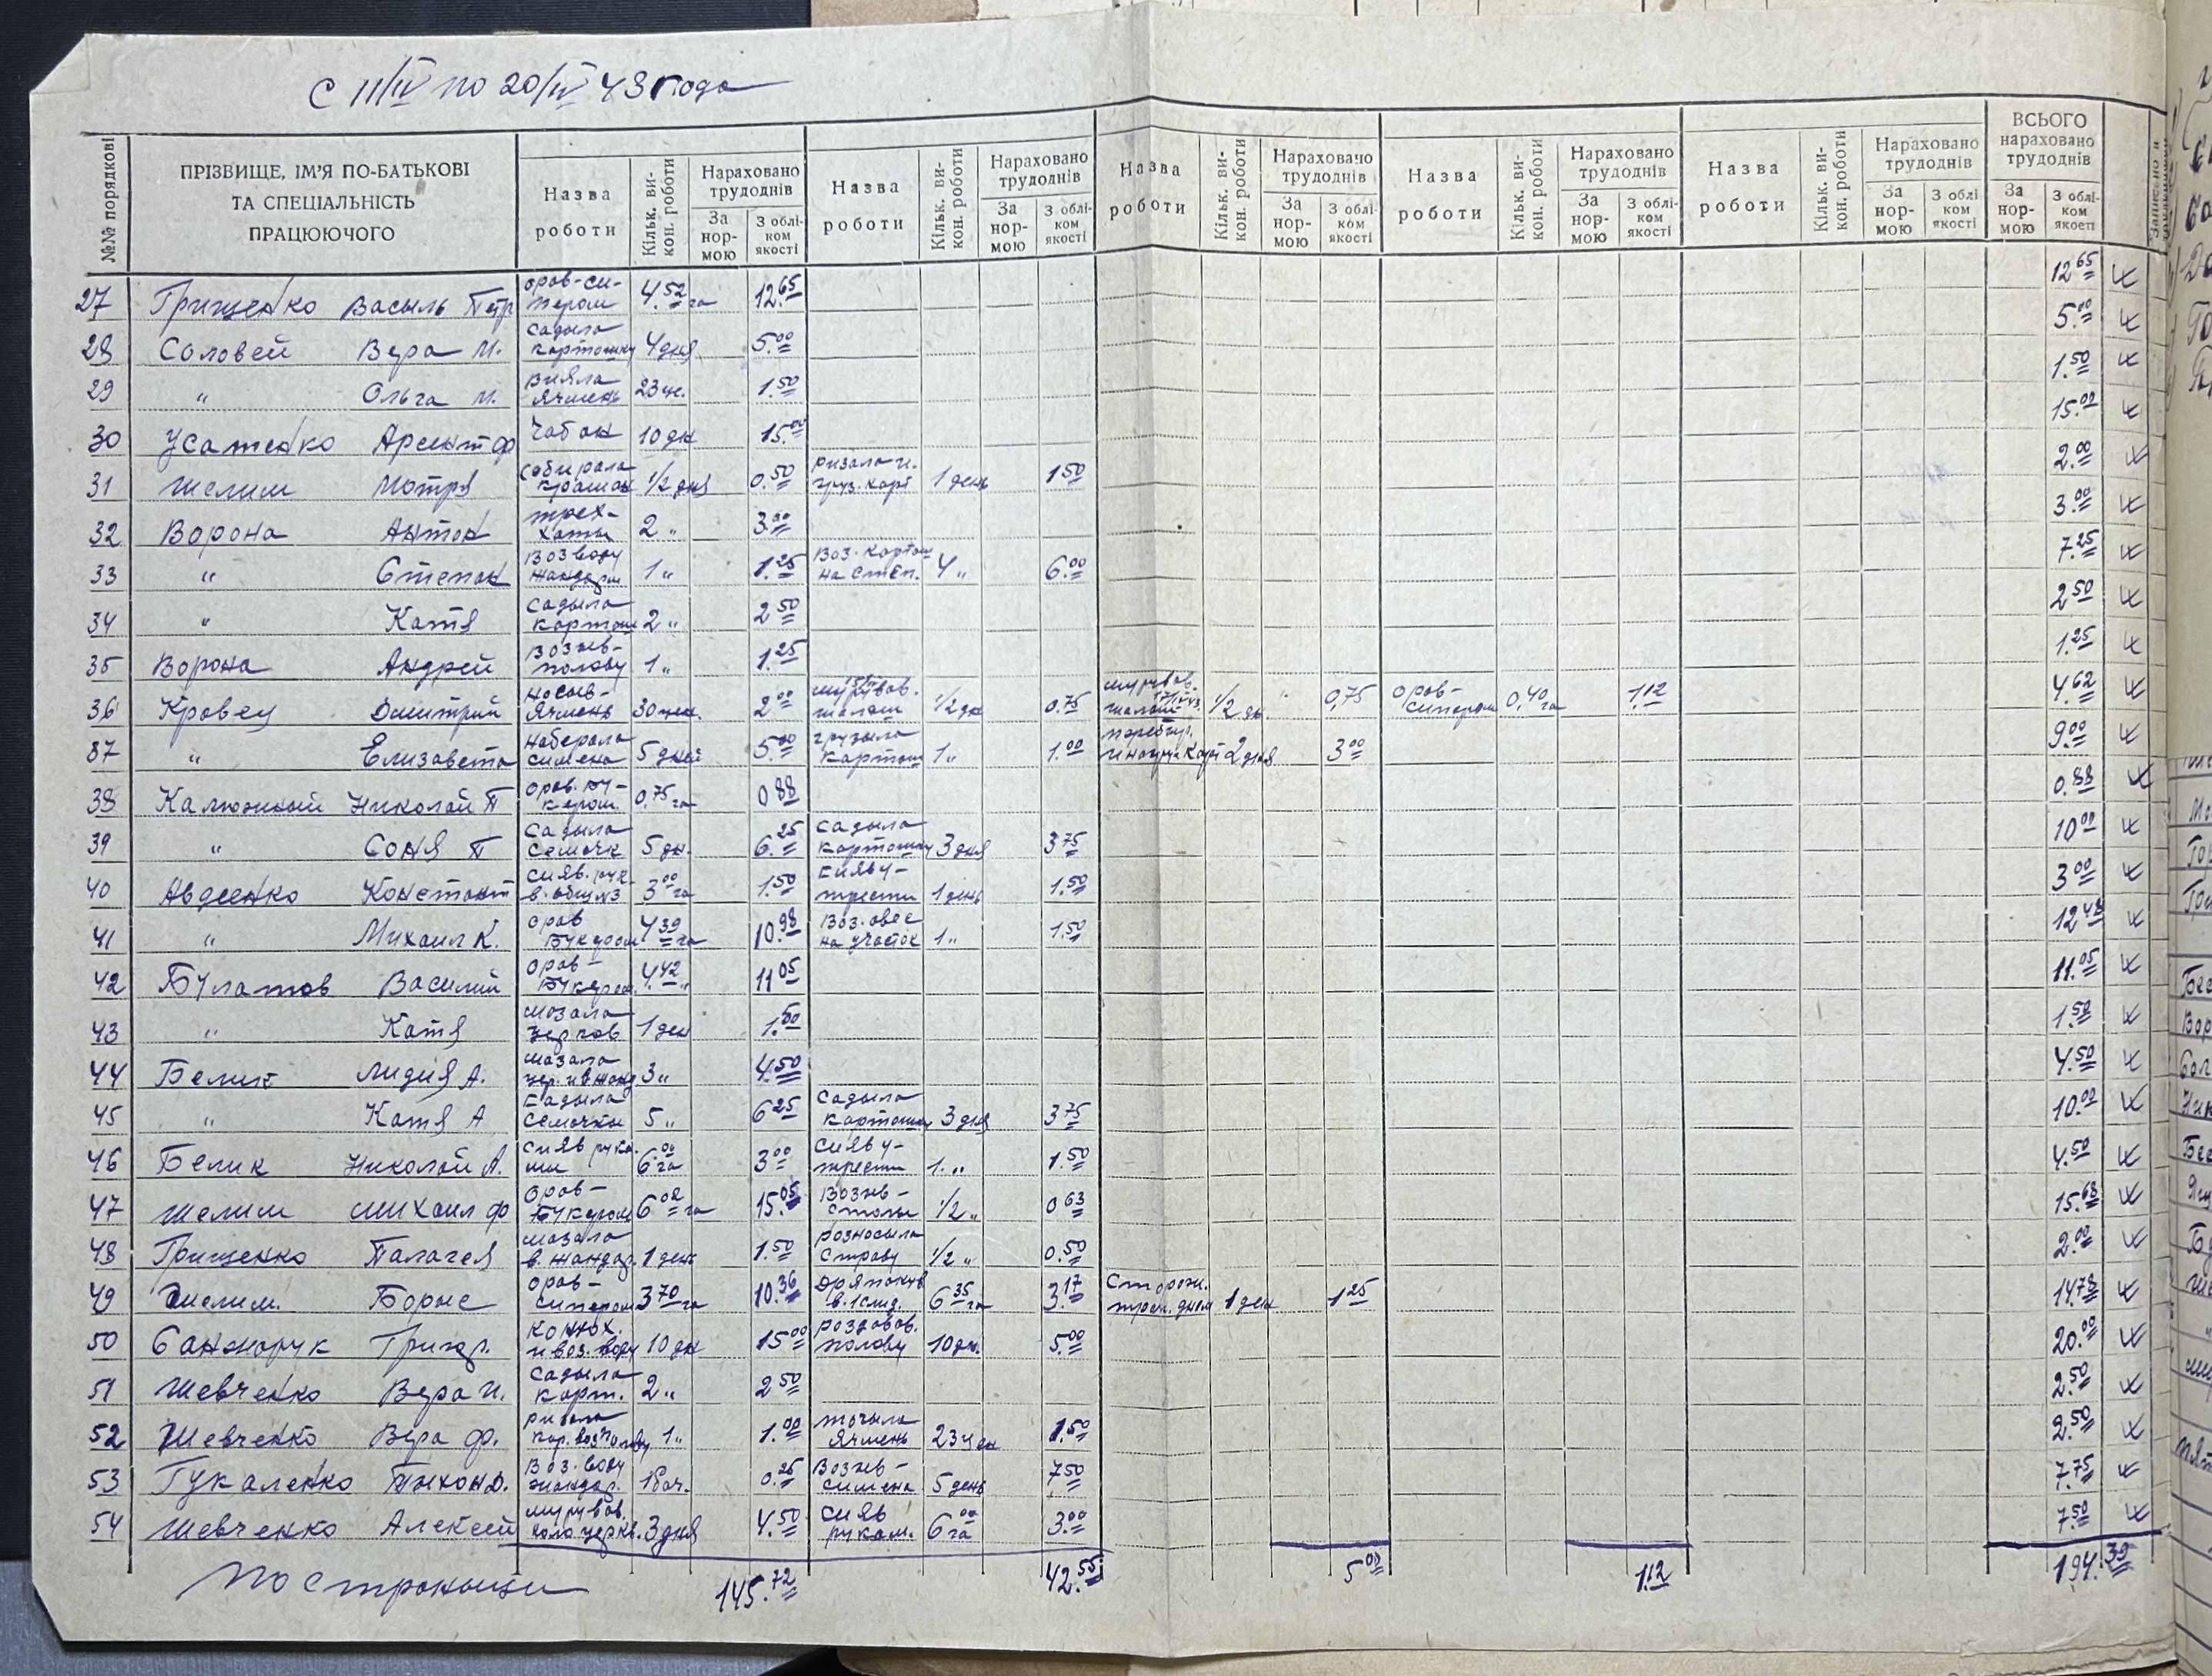 С 11/IV по 20/IV 43 года
№№ порядкові
ПРІЗВИЩЕ, ІМ'Я ПО-БАТЬКОВІ ТА СПЕЦІАЛЬНІСТЬ ПРАЦЮЮЧОГО
Назва роботи Кільк. ви-кон. роботи Нараховано трудоднів За нор-мою З облі-ком якості
Назва роботи Кільк. ви-кон. роботи Нараховано трудоднів За нор-мою З облі-ком якості
Назва роботи Кільк. ви-кон. роботи Нараховано трудоднів За нор-мою З облі-ком якості
Назва роботи Кільк. ви-кон. роботи Нараховано трудоднів За нор-мою З облі-ком якості
Назва роботи Кільк. ви-кон. роботи Нараховано трудоднів За нор-мою З облі-ком якості
ВСЬОГО нараховано трудоднів За нор-мою З облі-ком якості
27 Грищенко Васыль Петр орав-си-пером 4.52 га 12.65 12.65
28 Соловей Вера И. садыла картошку 4 дня 5.00 5.00
29 " Ольга И. вияла ячмень 23 це. 1.50 1.50
30 Усатенко Арсент ф чабан 10 дн 15.00 15.00
31 Шелим Мотря собирала 1/2 дня 0.50 ризала и. груз. карт 1 день 1.50 2.00
32 Ворона Антон трех-хаты 2 " 3.00 3.00
33 " Степан воз воду жандарм 1 " 1.25 воз. картош на степ. 4 " 6.00 7.25
34 " Катя садыла картош 2 " 2.50 2.50
35 Ворона Андрей возыв-полову 1 " 1.25 1.25
36 Кравец Дмитрий носыв-ячмень 30 цен. 2.00 муровав. 1/2 дн 0.75 муровав. 1/2 дн. 0,75 орав-сипером 0,40 га 1.12 4.62
37 " Елизавета наберала симена 5 дней 5.00 грузыла картош 1 " 1.00 перебир. 2 дня 3.00 9.00
38 Калюжный Николай П орав. бу-кером. 0,75 га 0.88 0.88
39 " Соня П садыла семечк 5 дн. 6.25 садыла картошку 3 дня 3.75 10.00
40 Авдеенко Констант сияв. рук 3.00 га 1.50 сияв у-трести 1 день 1.50 3.00
41 " Михаил К. орав Букером 4.39 га 10.98 воз. овес на участок 1 " 1.50 12.48
42 Булатов Василий орав-Букером. 4.42 " 11.05 11.05
43 " Катя мазала церков 1 ден 1.50 1.50
44 Белик Лидия А. мазала цер. и в жанд 3 " 4.50 4.50
45 " Катя А садыла семечки 5 " 6.25 садыла картошку 3 дня 3.75 10.00
46 Белик Николай А. сияв рука-ми 6.00 га 3.00 сияв у-трести 1. " 1.50 4.50
47 Шелим Михаил ф орав-Букером 6.02 га 15.05 возыв-столы 1/2 " 0.63 15.68
48 Грищенко Палагея мазала в. жандар. 1 день 1.50 розносыла страву 1/2 " 0.50 2.00
49 Шелим. Борыс орав-сипером 3.70 га 10.36 дряпакув в. 1 слид. 6.35 га 3.17 сторож. 1 ден 1.25 14.78
50 Санжорук Григор. конюх. и воз. воду 10 дн 15.00 роздавав. полову 10 дн. 5.00 20.00
51 Шевченко Вера И. садыла карт. 2 " 2.50 2.50
52 Шевченко Вера ф. ризала кар. воз полову 1 " 1.00 точыла ячмень 23 цен 1.50 2.50
53 Гукаленко Тыхон Д. воз. воду жандар. 1 боч. 0.25 возыв-симена 5 день 7.50 7.75
54 Шевченко Алексей муровав. коло церкв. 3 дня 4.50 сияв рукам. 6.00 га 3.00 7.50
По страныци 145.72 42.55 5.00 1.12 194.39